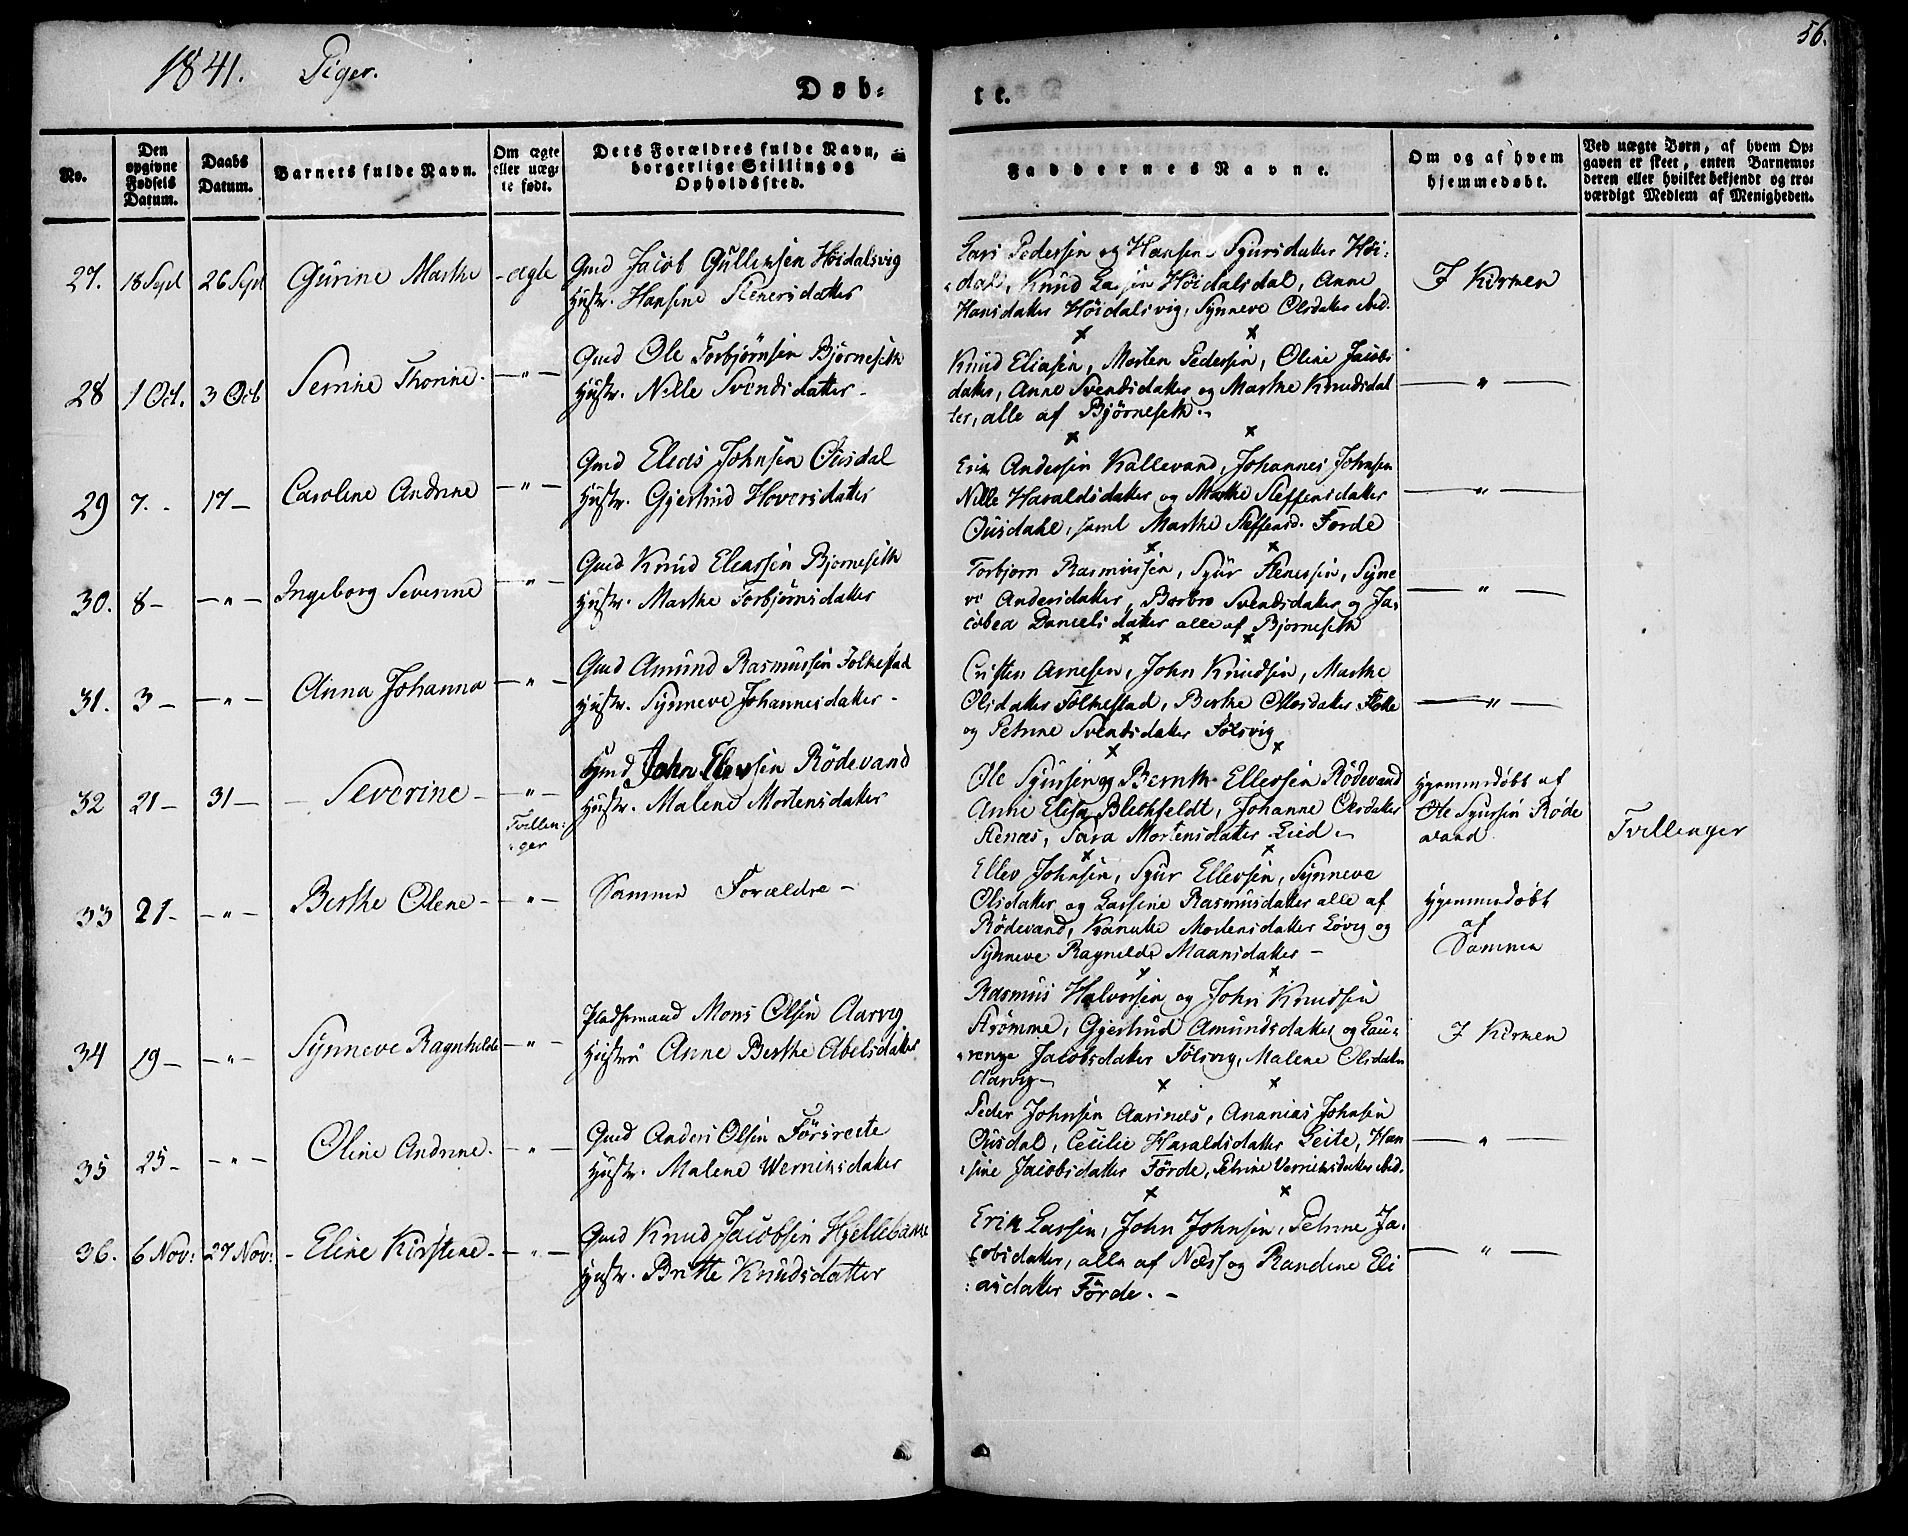 1841. Piger.
56.
Døb-
te.
No.
Den opgivne Fødsels Datum.
Daabs Datum.
Barnets fulde Navn.
Om ægte eller uægte født.
Dets Forældres fulde Navn, borgerlige Stilling og Opholdssted.
Faddernes Navne.
Om og af hvem hjemmedøbt.
Ved uægte Børn, af hvem Opgaven er skeet, enten Barnemoderen eller hvilket bekjendt og troværdigt Medlem af Menigheden.
27. 18 Sept 26 Sept Gurine Marthe - ægte
Gmd Jacob Gullensen Höidalsvig
Hustr. Hansine Stenersdatter
Lars Pedersen og Hansine Sjursdatter Höi:
dal, Knud Larsen Höidalsdal, Anne
Hansdatter Höidalsvig, Synneve Olsdatter ibid.
I Kirken
28 1 Oct. 3 Oct Serine Thorine. — " —
Gmd Ole Torbjørnsen Bjørneseth
Hustr. Nille Svendsdatter -
Knud Eliasen, Morten Pedersen, Oline Jacobs
datter, Anne Svendsdatter og Marthe Knudsdat
ter, alle af Bjørneseth.
— " —
29 7. - 17 — Caroline Andrine — " —
Gmd Elias Johnsen Ousdal
Hustr. Gjertrud Hoversdatter
Erik Andersen Kallevand, Johannes Johnsen
Nille Haraldsdatter og Marthe Steffensdatter
Ousdahl, samt Marthe Steffensd. Forde
— " —
30. 8 — — " — Ingeborg Severine — " —
Gmd Knud Eliassen Bjorneseth
Hustr. Marthe Torbjørnsdatter
Torbjorn Rasmussen, Sjur Stenersen, Synne
ve Andersdatter, Barbro Svendsdatter og Ja:
cobea Danielsdatter alle af Bjorneseth
— " —
31. 3 — — " — Anna Johanna — " —
Gmd Amund Rasmussen Folkestad
Hustr. Synneve Johannesdatter -
Cristen Arnesen, John Knudsen, Marthe
Olsdatter Folkestad, Berthe Olsdatter
og Petrine Svendsdatter Sölsvig
— " —
32 21 — 31 — — Severine — — " —
Tvillin:
:ger
Gmd John Ellevsen Rödevand
Hustr. Malene Mortensdatter
Ole Sjursen og Bernth Ellevsen Rödevand
Anne Elisa Blechfeldt, Johanne Olsdatter
Stenæs, Sara Mortensdatter Lied -
Hjemmedöbt af
Ole Sjursen Röde
vand
Tvillinger
33 21 — — " — Berthe Olene — — " —
Samme Forældre —
Ellev Johnsen, Sjur Ellevsen, Synneve
Olsdatter og Larsine Rasmusdatter alle af
Rödevand, Kanutte Mortensdatter Lövig og
Synneve Ragnilde Maansdatter —
Hjemmedöbt
af
Samme
34 19 — — " — Synneve Ragnhilde — " —
Pladsemand Mons Olsen Aarvig
Hustru Anne Berthe Abelsdatter
Rasmus Halvorsen og John Knudsen
Strömme, Gjertrud Amundsdatter og Lau:
:rense Jacobsdatter Sölsvig, Malene Olsdatter
Aarvig —
I Kirken
35 25 — — " — Oline Andrine. — " —
Gmd Anders Olsen Försreite
Hustr. Malene Werninsdatter
Peder Johnsen Aarsnæs, Ananias Johnsen
Ousdal, Cecilie Haraldsdatter Leite, Han
:sine Jacobsdatter Förde, Petrine Verninsdatter ibid.
— " —
36. 6 Nov: 27 Nov: — Eline Kirstine — — " —
Gmd Knud Jacobsen Hjellebakke
Hustr. Britte Knudsdatter
Erik Larsen, John Johnsen, Petrine Ja:
:cobsdatter, alle af Næs og Randine Eli
:asdatter Förde. —
— " —